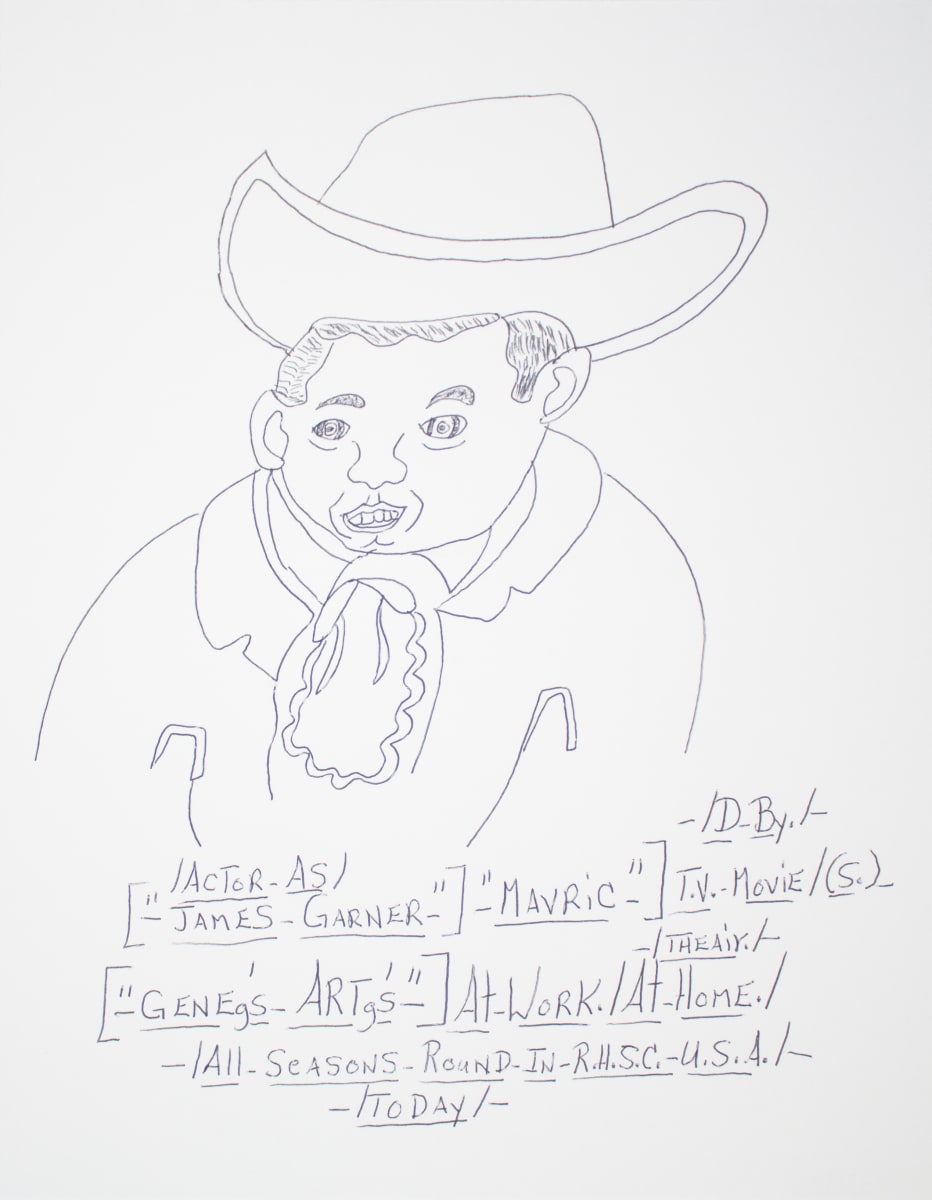 -/D-By./-
/ACTOR-AS/
["-JAMES-GARNER-"] "-MAVRIC-"] T.V.-MOVIE/(S.)-
-/THEAir./-
["-GENEg's-ARTg's-"] At-WORK./At-HOME./
-/All-SeASONS-ROUND-IN-R.H.S.C.-U.S.A./-
-/TODAY/-